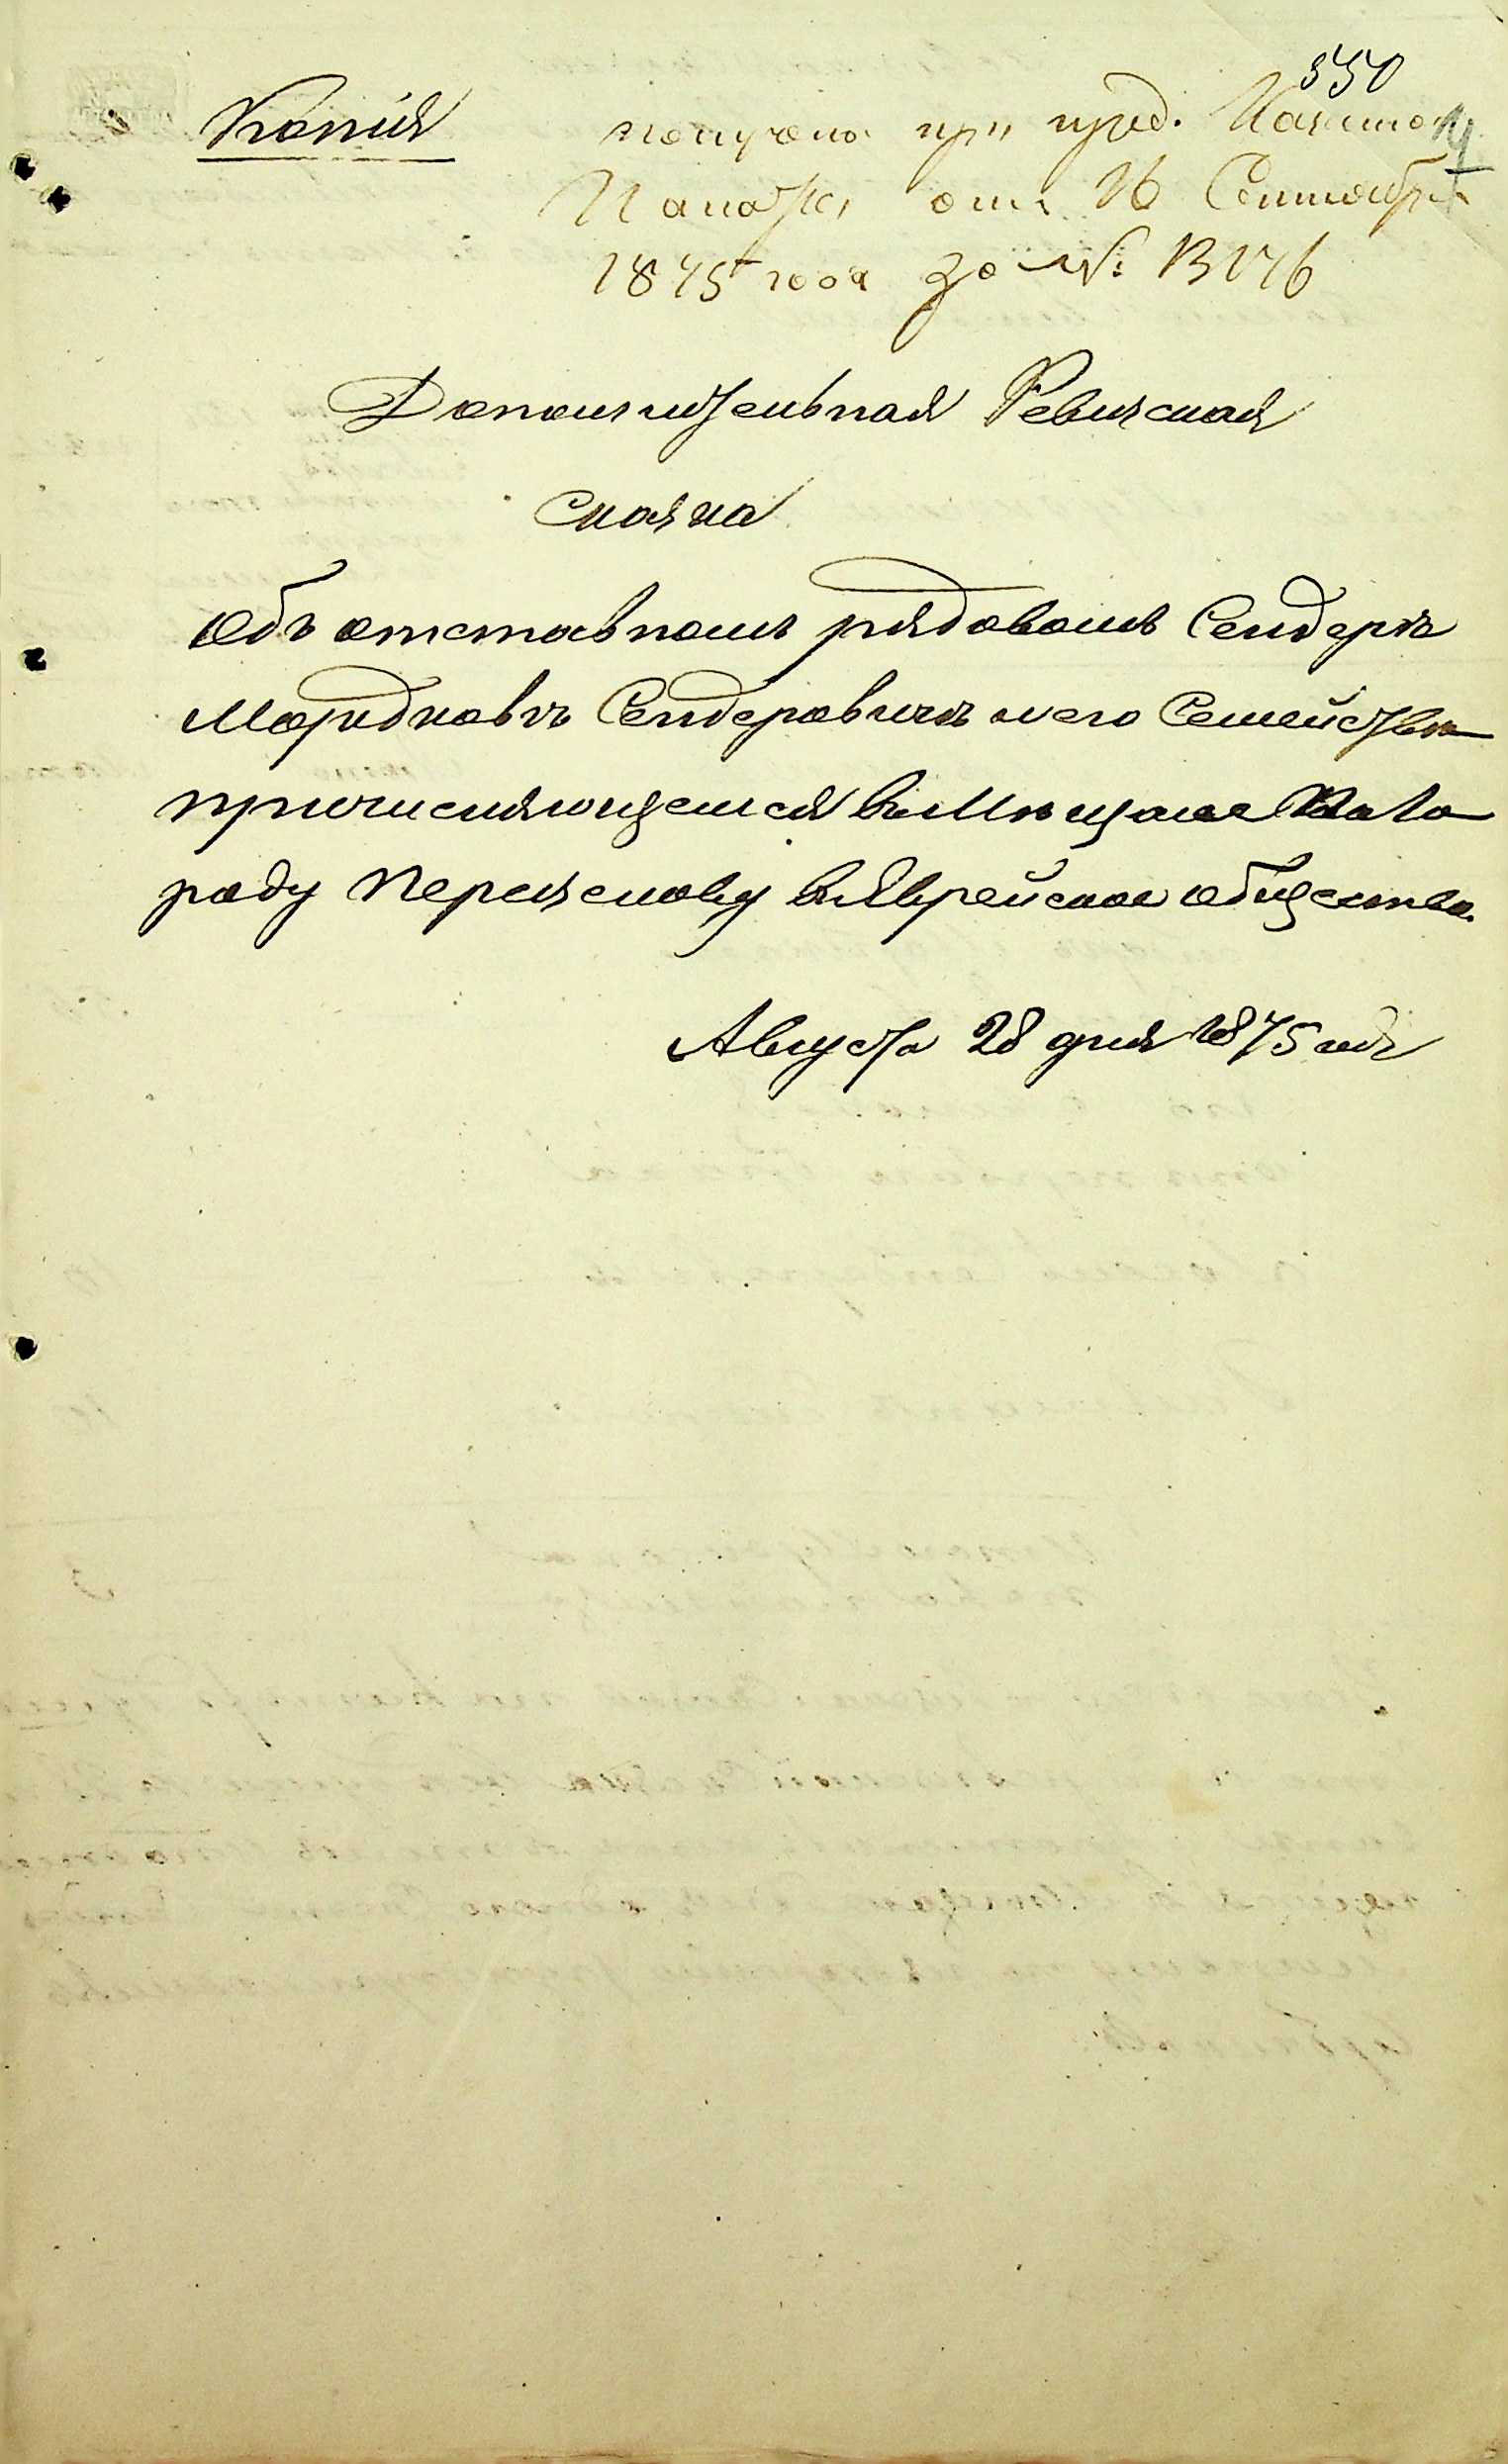 550
Копія
получена при пред. Казенной
Палаты отъ 16 Сентября
1875 года за №: 13176
Дополнительная Ревизская
Сказка
Объ отставномъ рядовомъ Сендеръ
Мордковъ Сендеровичъ и его Семействѣ
причисляющемся въ Мѣщане Къ го
роду Переяславу въ Еврейское общество.
Августа 28 дня 1875 года